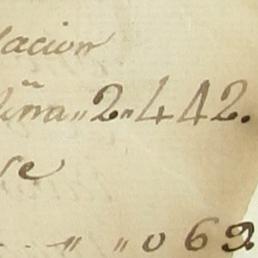 lacion
2"442.
re
" " 069